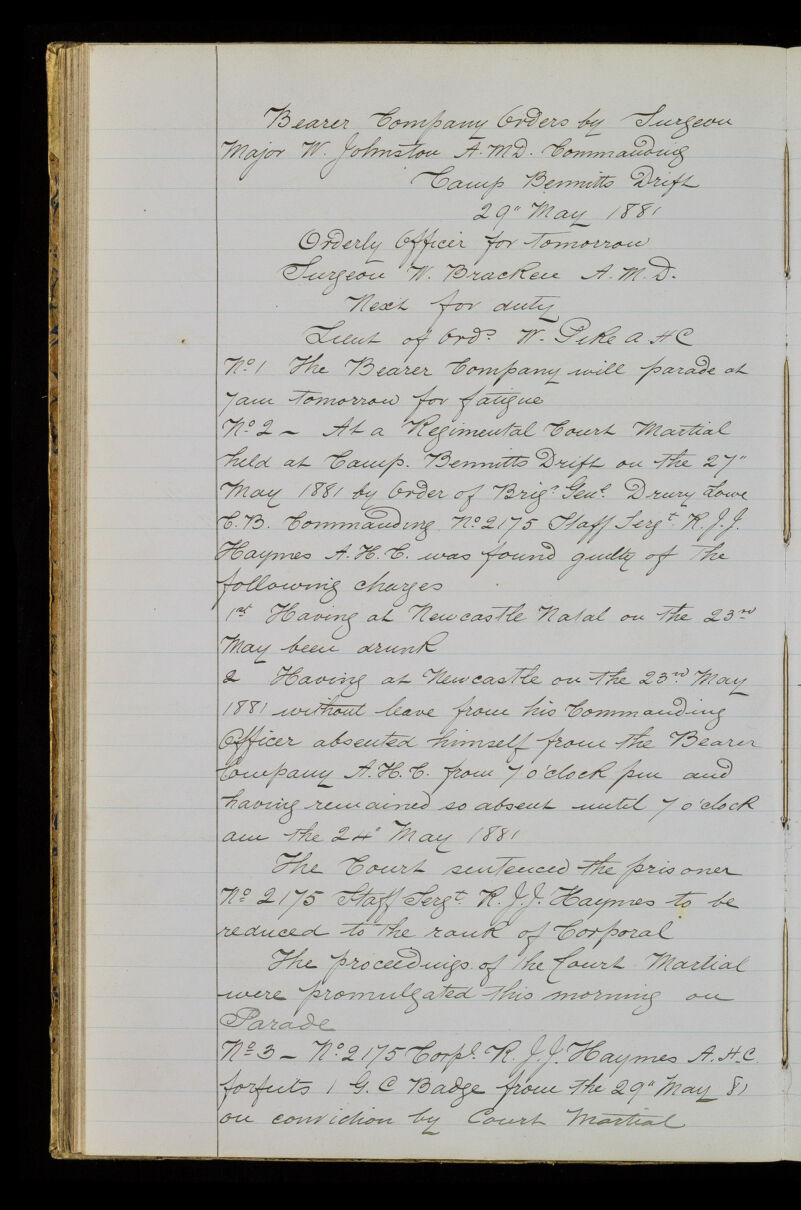 Bearer Company Orders by Surgeon
Major W. Johnston A.M.D. Commanding
Camp Bennitts Drift
29" May 1881
Orderly Officer for Tomorrow
Surgeon W. Bracken A.M.D.
Next for duty
Lieut of Ords W. Pike A H C
No 1 The Bearer Company will parade at
7 am Tomorrow for fatigue
No 2 - At a Regimental Court Martial
held at Camp. Bennitts Drift on the 27"
May 1881 by Order of Brigr Genl. Drury Lowe
C.B. Commanding No 2175 Staff Sergt R.J.J.
Haymes A.H.C. was found guilty of The
following charges
1st Having at Newcastle Natal on the 23rd
May been drunk
2 Having at Newcastle on the 23rd May
1881 without leave from his Commanding
Officer absented himself from the Bearer
Company A.H.C. from 7 o'clock pm and
having remained so absent until 7 o'clock
am the 24" May 1881
The Court sentenced the prisoner
No 2175 Staff Sergt R.J.J. Haymes to be
reduced to the rank of Corporal
The proceedings of the Court Martial
were promulgated this morning on
Parade
No 3 - No 2175 Corpl. R.J.J. Haymes A.H.C.
forfuts 1 G.C Badge from the 29" May 81
on conviction by Court Martial